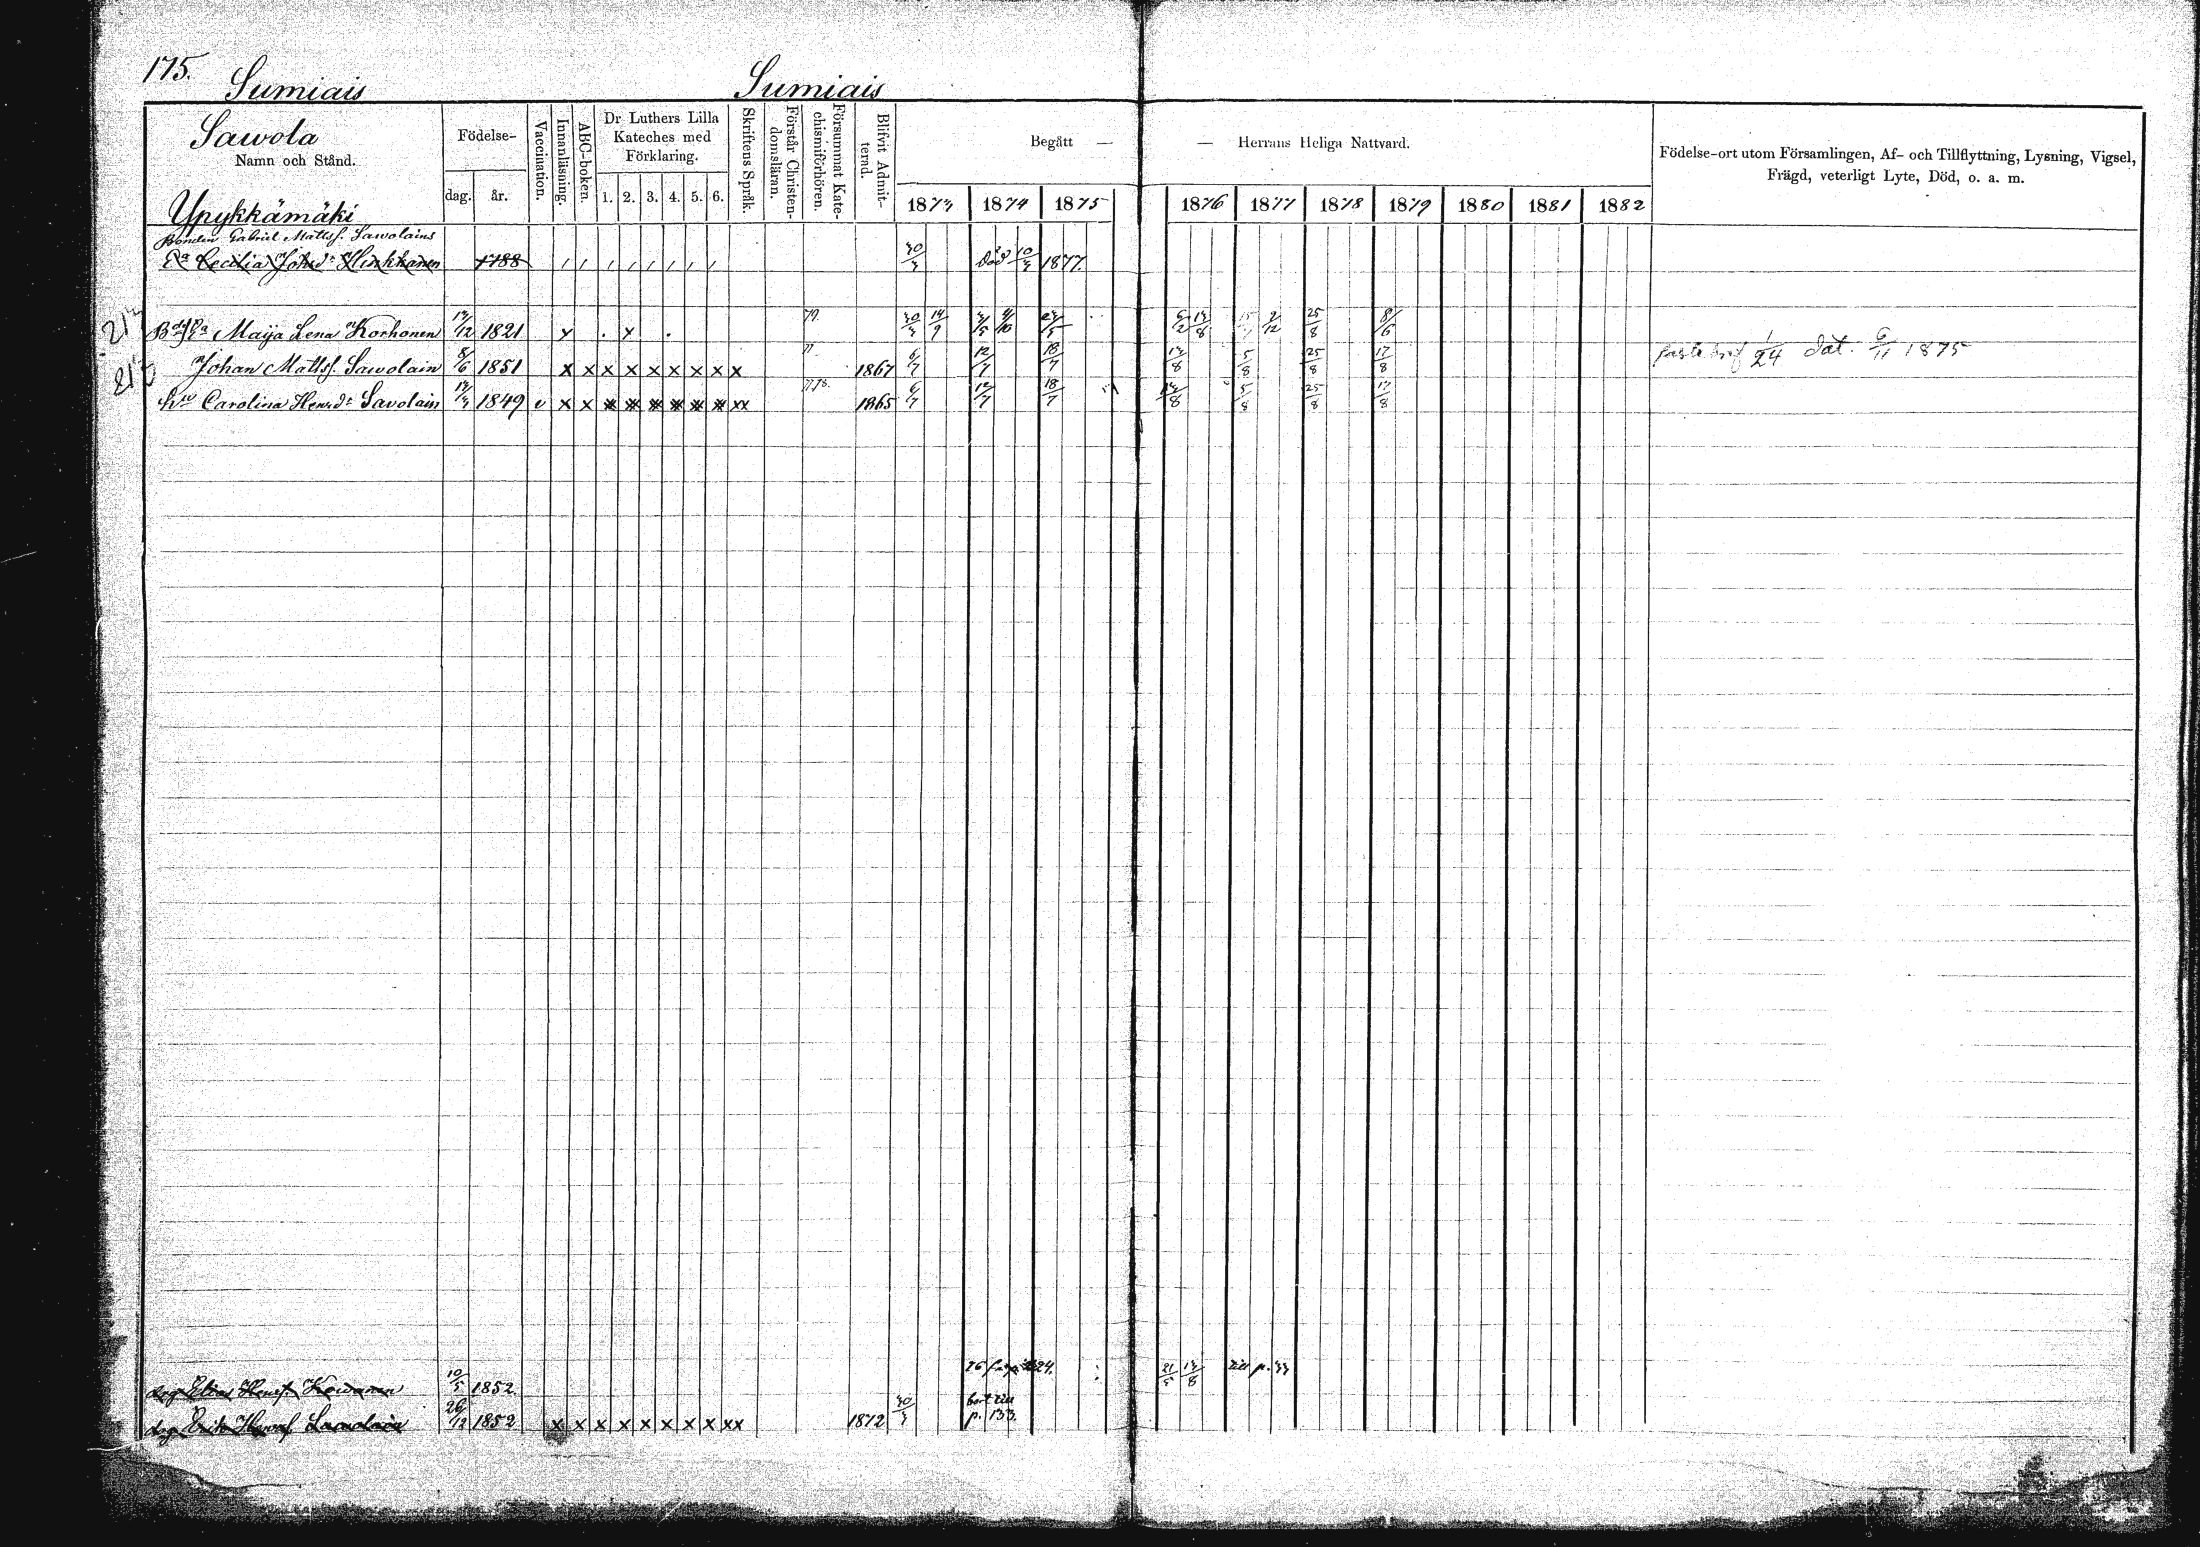 175.
Sumiais Sumiais
Sawola
Namn och Stånd.
Ypykkämäki
Födelse-
dag. år.
Vaccination.
Innanläsning.
ABC-boken.
Dr Luthers Lilla
Kateches med
Förklaring.
1. 2. 3. 4. 5. 6.
Skriftens Språk.
Förstår Christen-
domsläran.
Försummat Kate-
chismiförhören.
Blifvit Admit-
terad.
Begått — — Herrans Heliga Nattvard.
1873 1874 1875 1876 1877 1878 1879 1880 1881 1882
Födelse-ort utom Församlingen, Af- och Tillflyttning, Lysning, Vigsel,
Frägd, veterligt Lyte, Död, o. a. m.
Bonden Gabriel Mattsf. Sawolains
Ea Cecilia Johsd:r Hinkkanen 1788 30/3 död 10/3 1877.
Maija Lena Korhonen 13/12 1821 x . x . 30/3 14/9 4/10 6/2 13/8 2/12 25/8 8/6
Johan Mattsf. Sawolain 8/6 1851 x x x x x x x x x 1867 6/7 12/7 18/7 13/8 5/8 25/8 17/8 1/24 dat. 6/11 1875
hu Carolina Henrd:r Savolain 13/3 1849 v x x x x x x x x xx 1865 6/7 12/7 18/7 13/8 5/8 25/8 17/8
drg Elias Henrsf Kovanen 10/5 1852 21/5 13/8 till p. 33
drg Erik Henrsf Savolain 26/12 1852 x x x x x x x x xx 1872 30/3 bort till
p. 133.